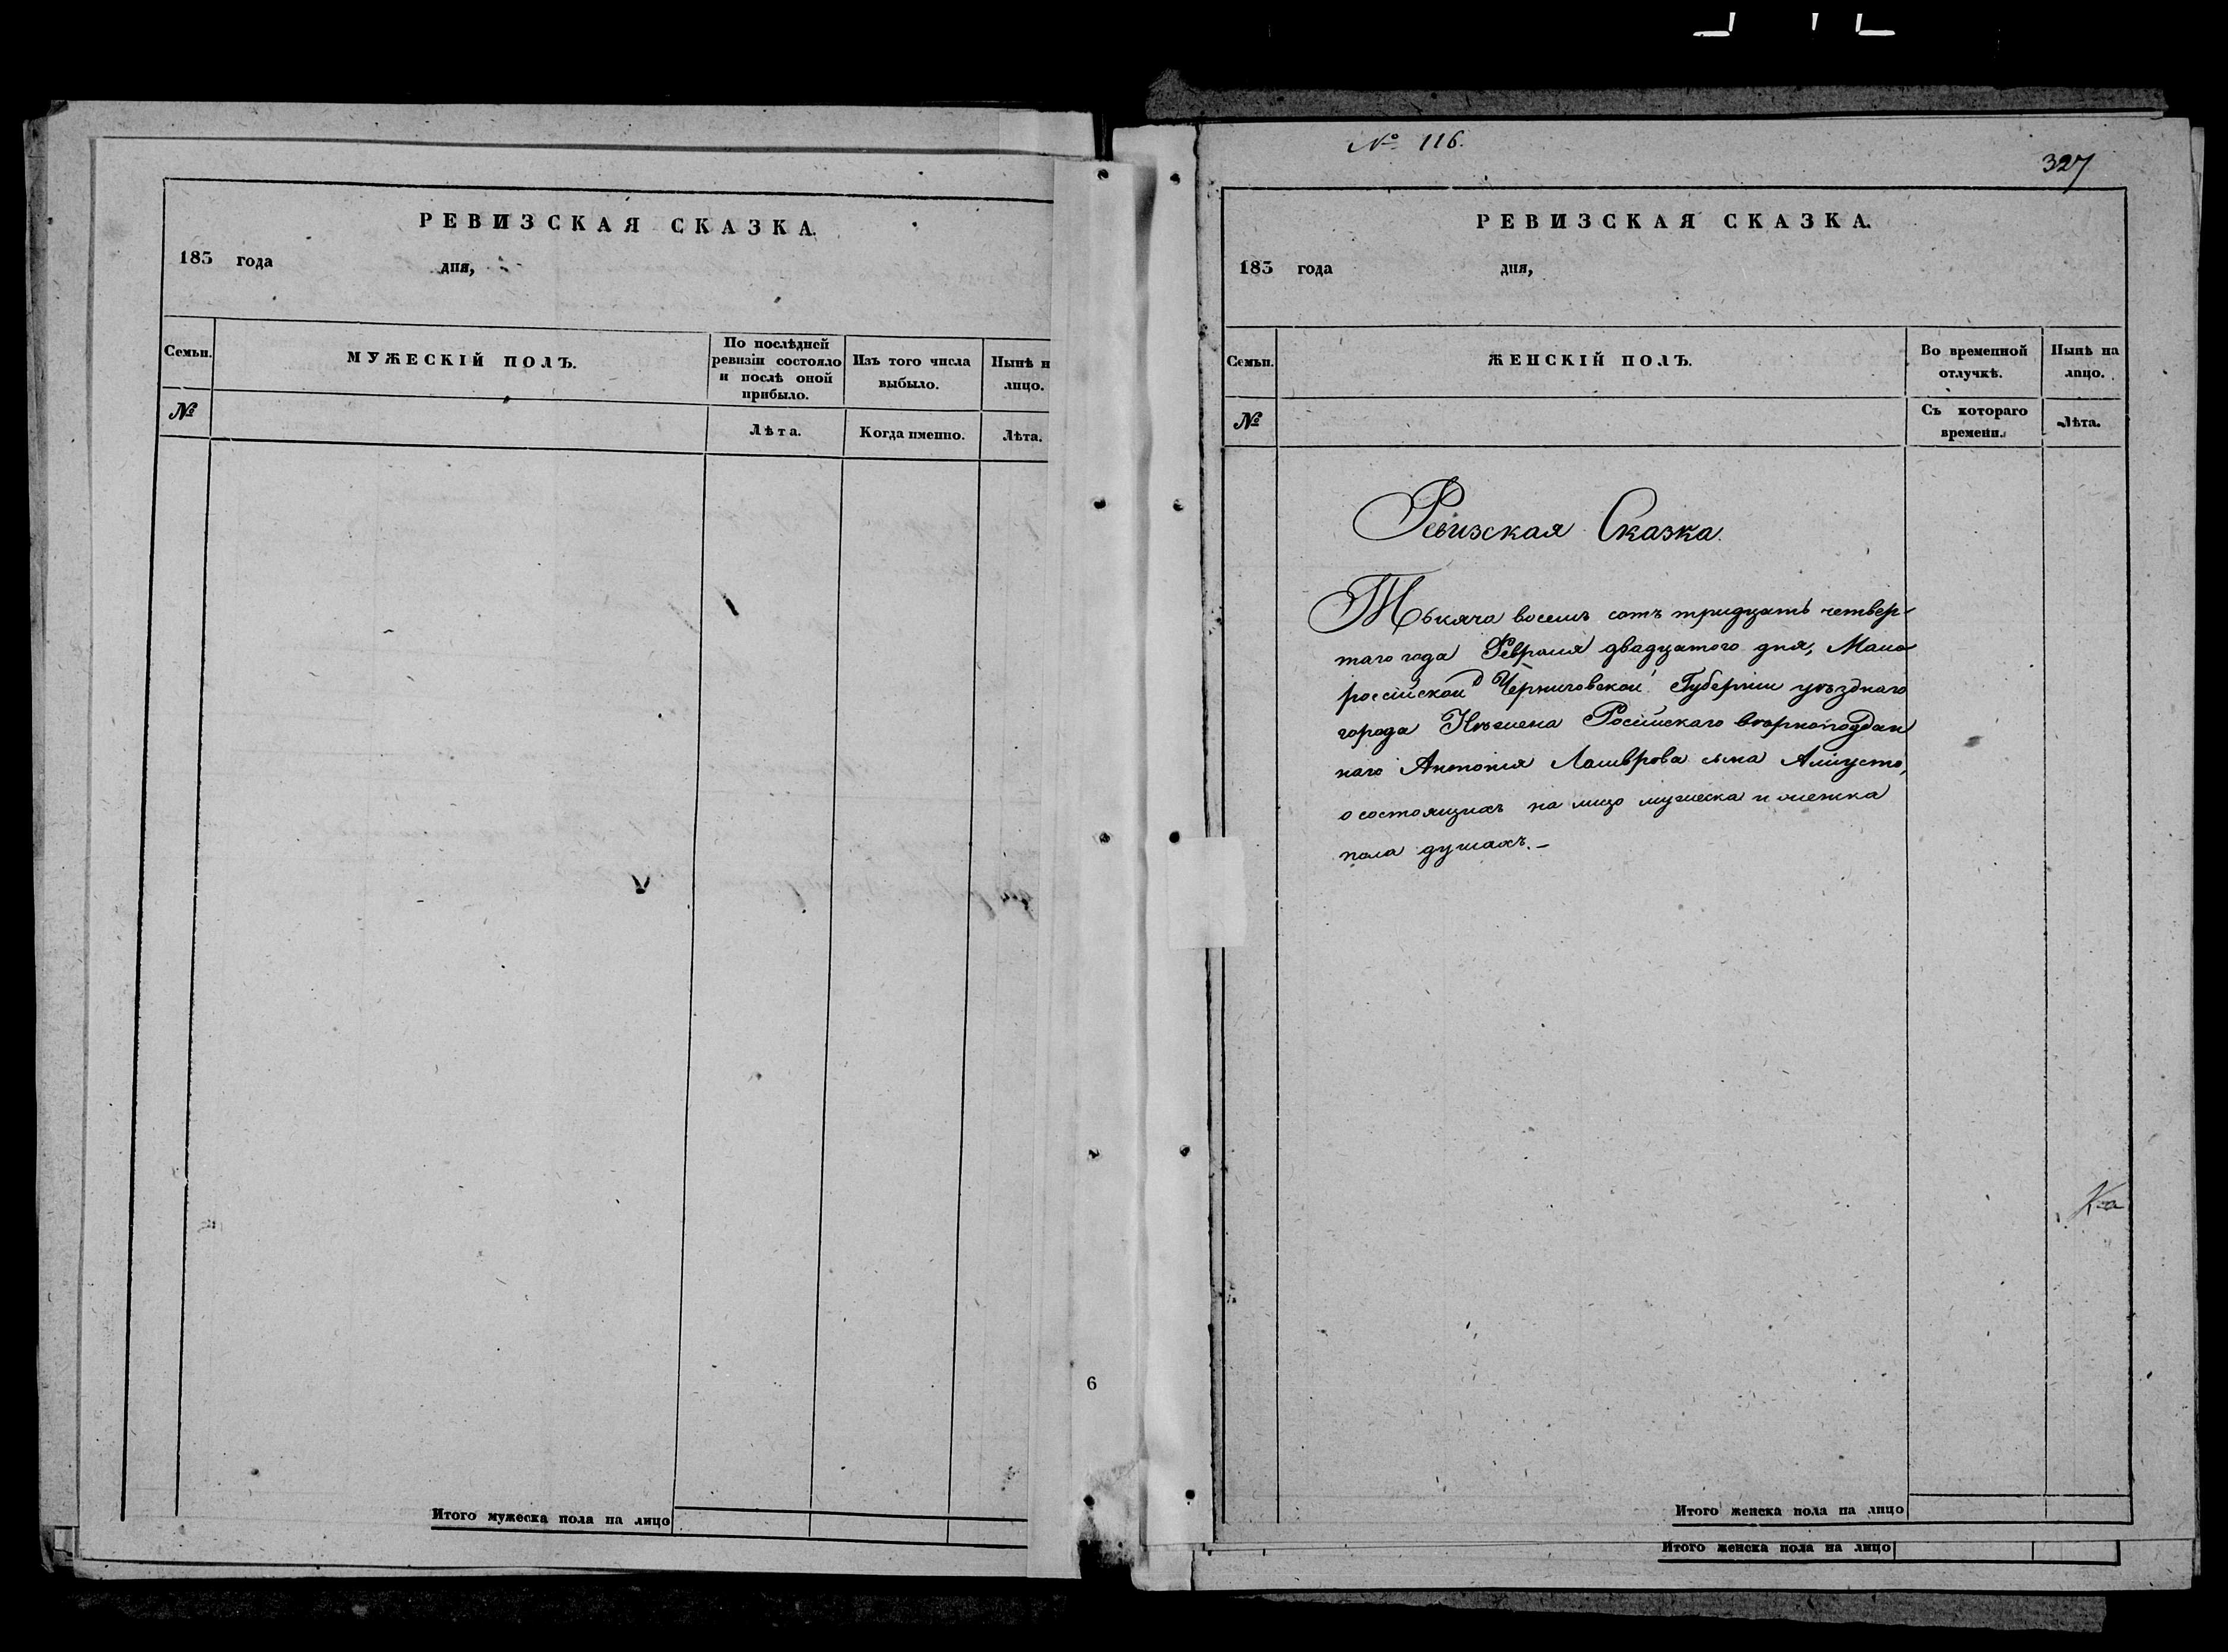 РЕВИЗСКАЯ СКАЗКА.
183 года дня,
Семьи.
МУЖЕСКІЙ ПОЛЪ.
По послѣдней
ревизіи состояло
и послѣ оной
прибыло.
Изъ того числа
выбыло.
Нынѣ н
лицо.
№
Лѣта.
Когда именно.
Лѣта.
Итого мужеска пола на лицо
6
№ 116.
327
РЕВИЗСКАЯ СКАЗКА.
183 года дня,
Семьи.
ЖЕНСКІЙ ПОЛЪ.
Во временной
отлучкѣ.
Нынѣ на
лицо.
№
Съ котораго
времени.
Лѣта.
Ревизская Сказка.
Тысяча восемъ сотъ тридцать четвер-
таго года Февраля двадцатого дня, Мало
россійской Черниговской Губерніи уѣзднаго
города Нѣжена Росийскаго вѣрноподдан
наго Антонія сына
о состоящихъ на лицо мужеска и женска
пола душахъ.—
К-а
Итого женска пола на лицо
Итого женска пола на лицо